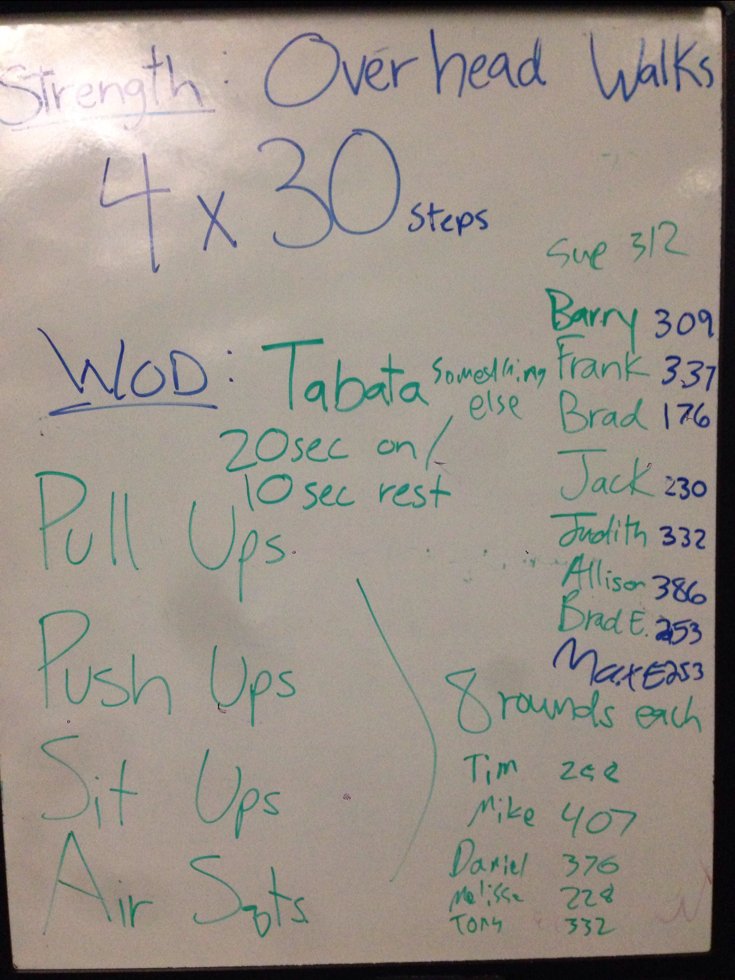 Strength: Overhead Walks
4 x 30 steps
WOD: Tabata something else
20sec on/
10 sec rest
Pull Ups
Push Ups
Sit Ups
Air Sqts
Sue 312
Barry 309
Frank 337
Brad 176
Jack 230
Judith 332
Allison 386
Brad E. 253
Max E 253
8 rounds each
Tim
Mike 407
Daniel 376
Melissa 228
Tony 332